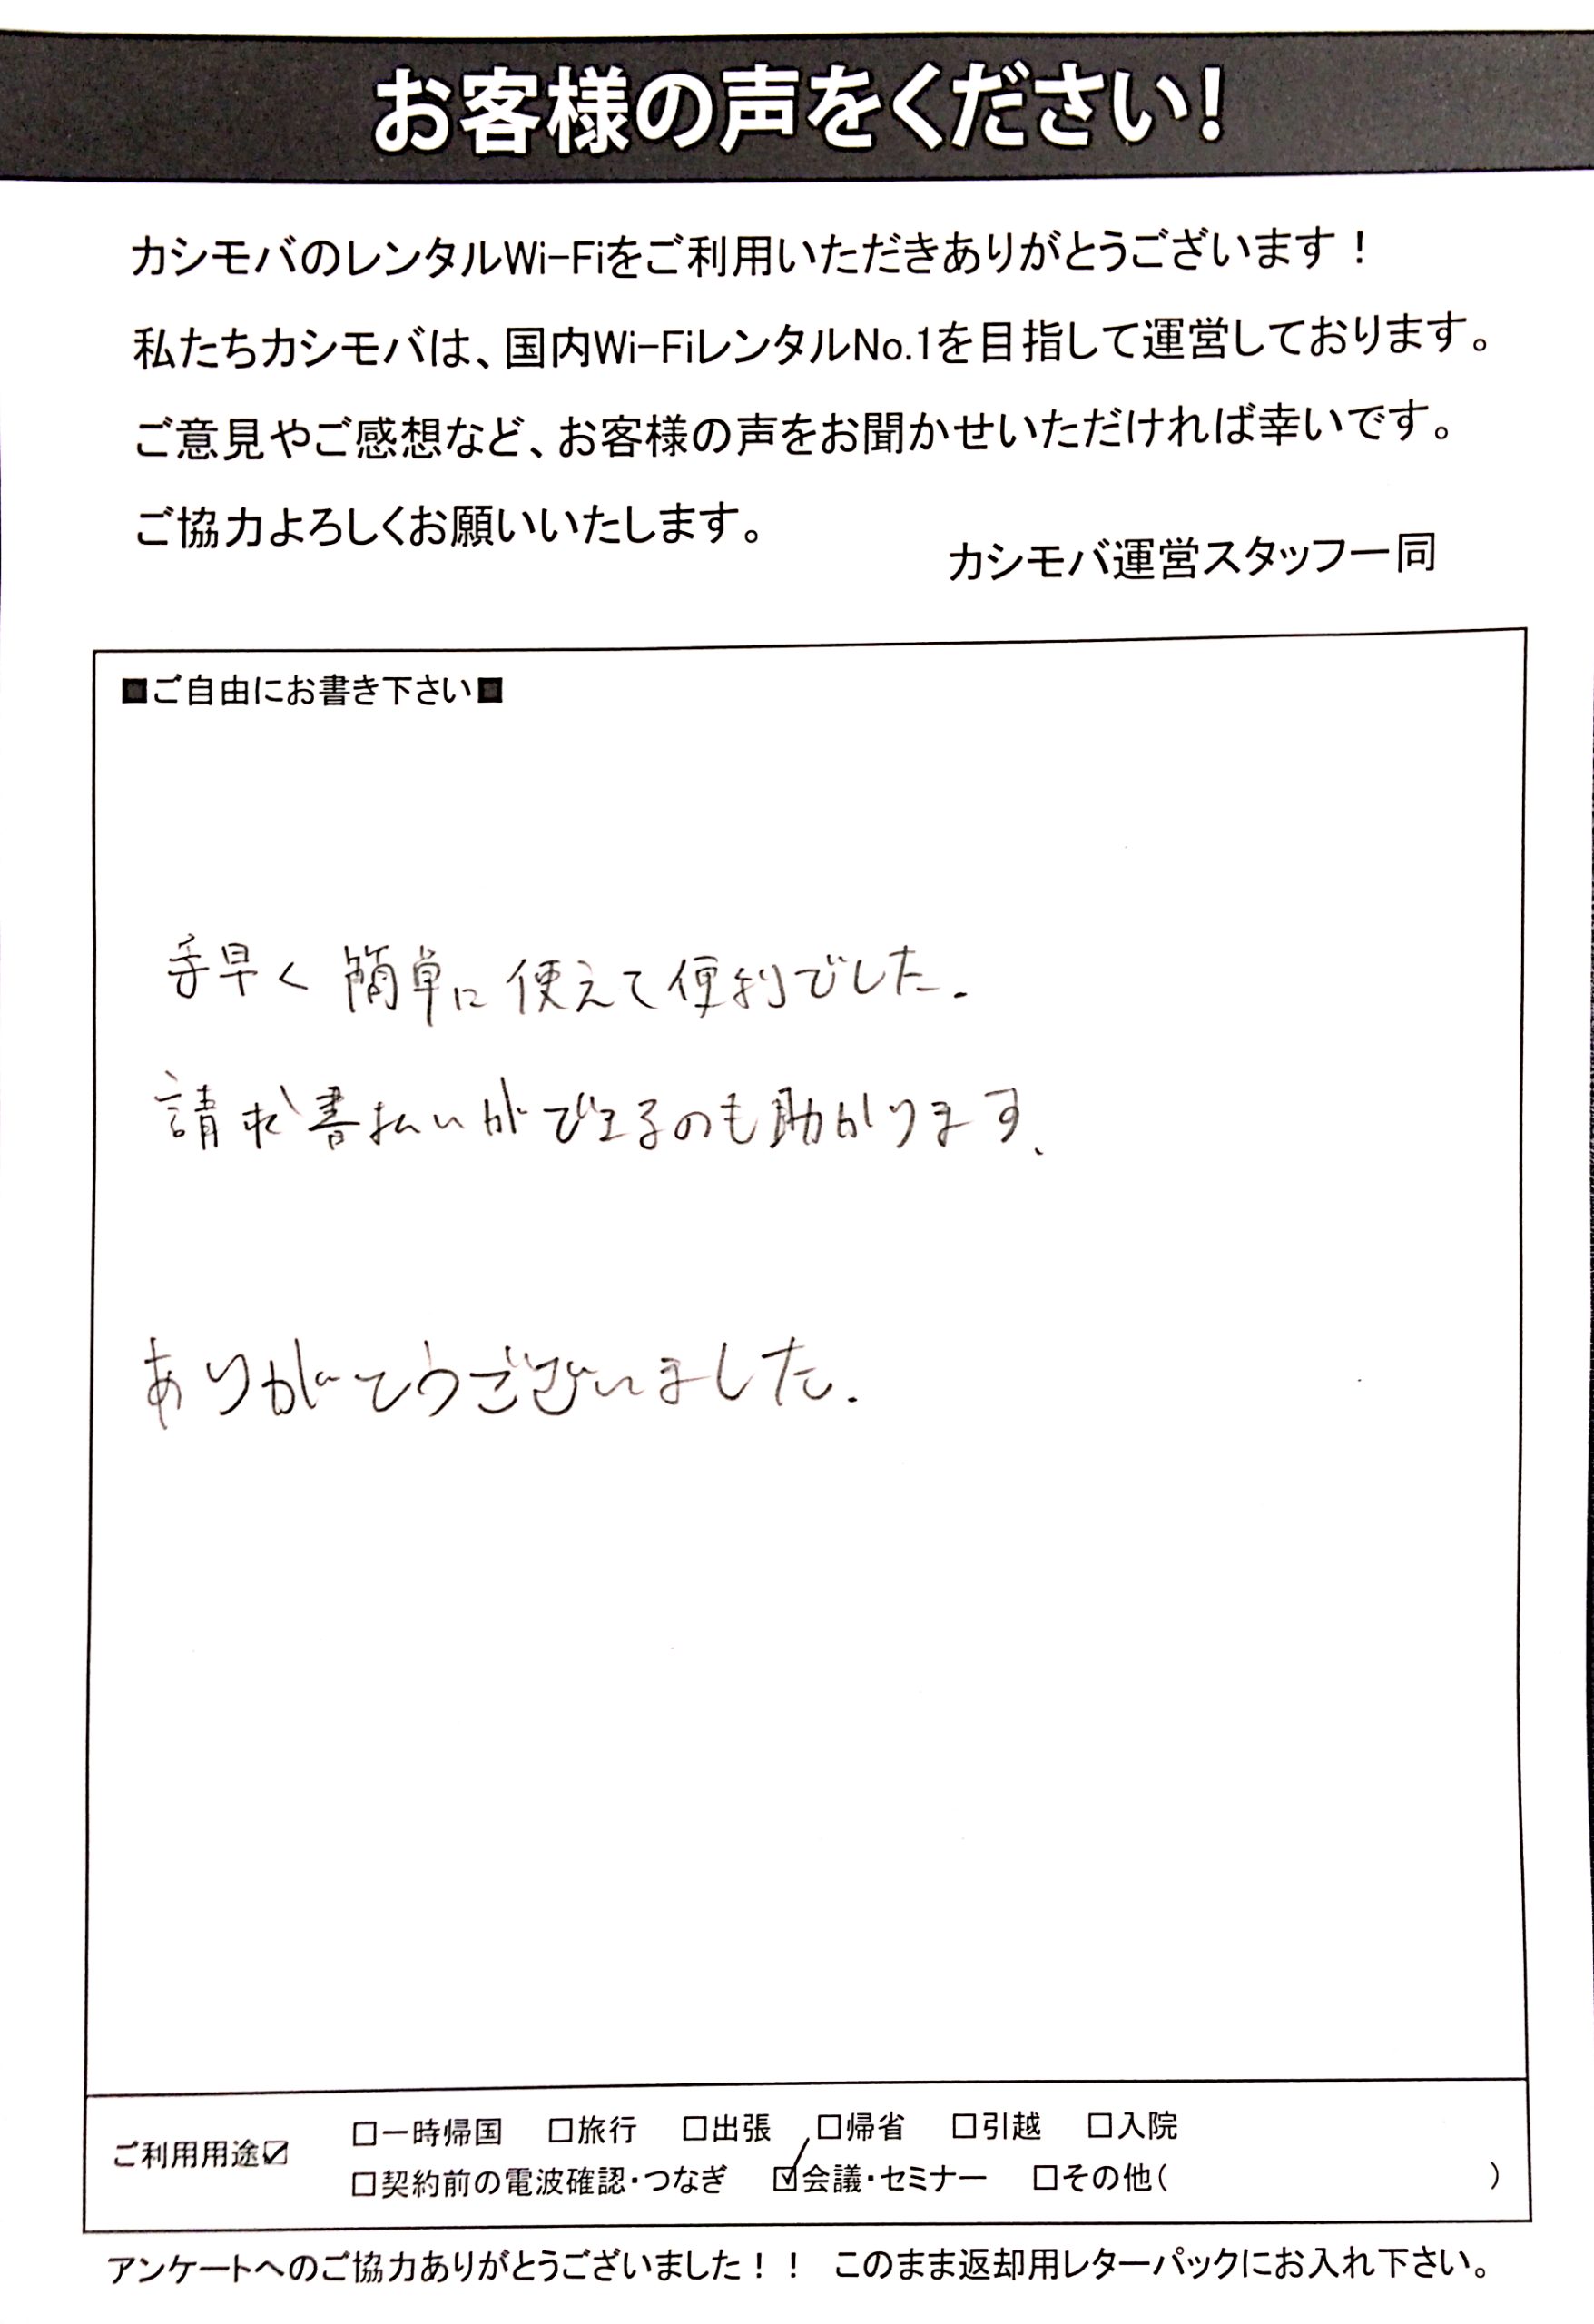 お客様の声をください!
カシモバのレンタルWi-Fiをご利用いただきありがとうございます！
私たちカシモバは、国内Wi-FiレンタルNo.1を目指して運営しております。
ご意見やご感想など、お客様の声をお聞かせいただければ幸いです。
ご協力よろしくお願いいたします。
カシモバ運営スタッフ一同
■ご自由にお書き下さい■
手早く簡単に使えて便利でした.
請求書払いができるのも助かります.
ありがとうございました.
ご利用用途☑ □一時帰国 □旅行 □出張 □帰省 □引越 □入院
□契約前の電波確認・つなぎ ☑会議・セミナー □その他( )
アンケートへのご協力ありがとうございました！！ このまま返却用レターパックにお入れ下さい。